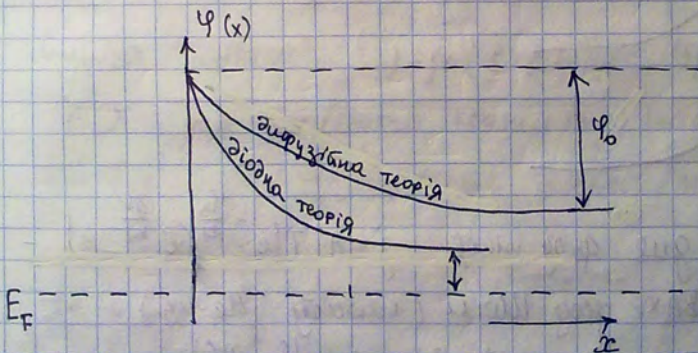 φ(x)
дифузійна теорія
діодна теорія
φ₀
E_F
x